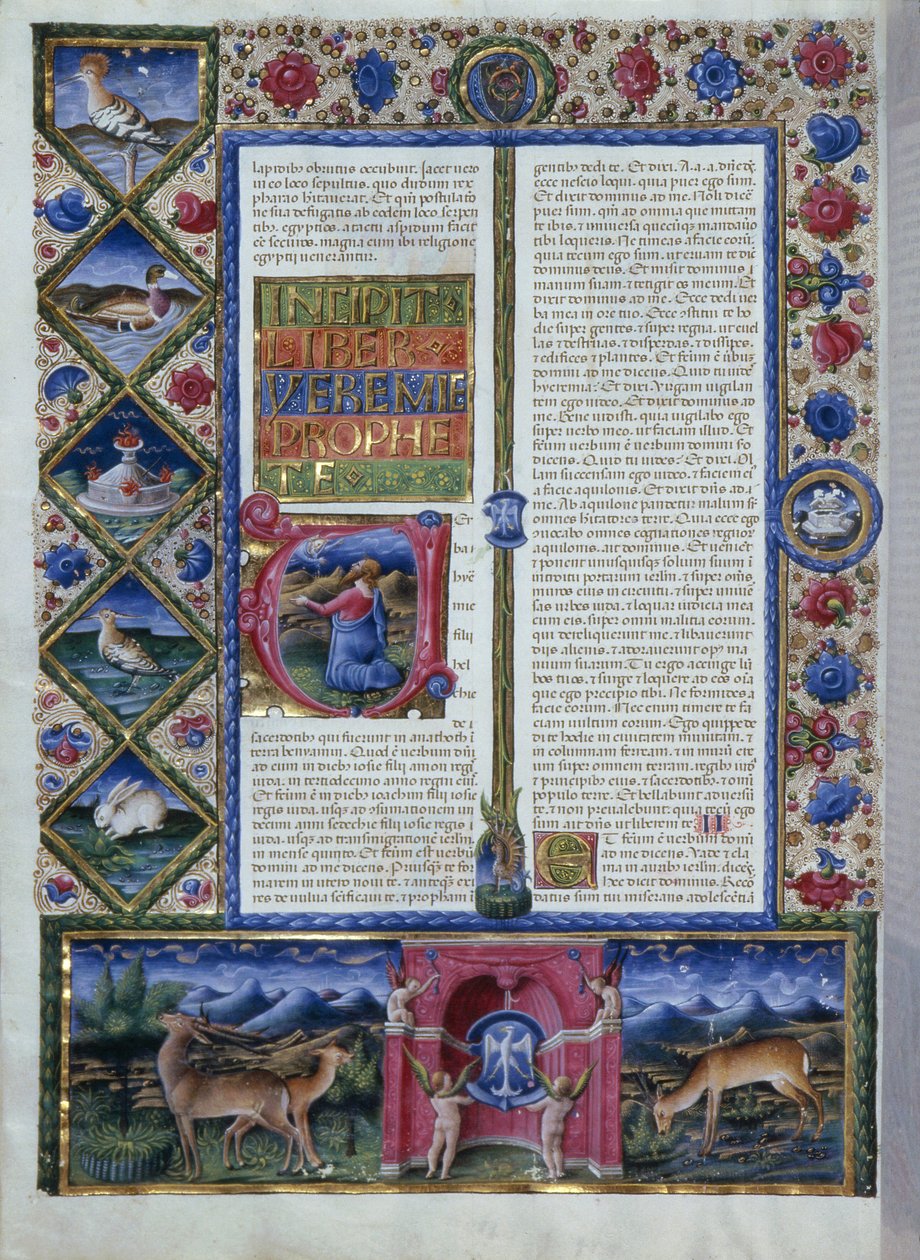 lapidibꝰ obrutus occubuit. Iacet uero
in eo loco sepultus. quo dudum rex
pharao hitauerat. Et qm̃ postulato
ne sua defugatis ab eodem loco serpen
tibꝰ. egyptios. a tactu aspidum facit
eẽ securos. magna eum ibi religione
egyptij uenerantur.
INCIPIT
LIBER
YEREMIE
PROPHE
TE
Et
ba
hye
mie
filij
hel
chie
de
sacerdotibꝰ qui fuerunt in anathoth in
terra benyamin. Quod ẽ uerbum dñi
ad eum in diebꝰ iosie filij amon regis
iuda. in tertiodecimo anno regni eiꝰ.
Et ſcm̃ ẽ in diebꝰ ioachim filij iosie
regis iuda. usqꝫ ad ꝯsumationem un
decimi anni sedechie filij iosie regis
iuda. usqꝫ ad transmigrationẽ ierlm̃.
in mense quinto. Et ſcm̃ est uerbũ
domini ad me dicens. Priusqꝫ te for
marem in utero noui te. ⁊ anteqꝫ exi
res de uulua sc̃ificaui te. ⁊ prophetam
gentibꝰ dedi te. Et dixi. A. a. a. dñe dẽ.
ecce nescio loqui. quia puer ego sum.
Et dixit dominus ad me. Noli dicere
puer sum. qm̃ ad omnia que mittam
te ibis. ⁊ uniuersa quecũqꝫ mandauo
tibi loqueris. Ne timeas a facie eorũ.
quia tecum ego sum. ut eruam te dic̃
dominus deus. Et misit dominus
manum suam. ⁊ tetigit os meum. Et
dixit dominus ad me. Ecce dedi uer
ba mea in ore tuo. Ecce ꝯstitui te ho
die super gentes. ⁊ super regna. ut euel
las ⁊ destruas. ⁊ disperdas. ⁊ dissipes.
⁊ edifices ⁊ plantes. Et ſcm̃ ẽ uerbuz
domini ad me dicens. Quid tu uides
hyeremia? Et dixi. Virgam uigilan
tem ego uideo. Et dixit dominus ad
me. Bene uidisti. quia uigilabo ego
super uerbo meo. ut faciam illud. Et
ſcm̃ uerbum ẽ uerbum domini so
dicens. Quid tu uides? Et dixi. Ol
lam succensam ego uideo. ⁊ faciem eiꝰ
a facie aquilonis. Et dixit dñs ad
me. Ab aquilone pandetur malum sr̃
omnes hitatores terre. Quia ecce ego
ꝯuocabo omnes cognationes regnorꝫ
aquilonis. ait dominus. Et uenient
⁊ ponent unusquisqꝫ solium suum in
introitu portarum ierlm̃. ⁊ super om̃s
muros eius in circuitu. ⁊ super uniuer
sas urbes iuda. ⁊ loquar iudicia mea
cum eis. super omni malitia eorum.
qui dereliquerunt me. ⁊ libauerunt
dijs alienis. ⁊ adorauerunt opꝰ ma
nuum suarum. Tu ergo accinge lũ
bos tuos. ⁊ surge ⁊ loquere ad eos oĩa
que ego precipio tibi. Ne formides a
facie eorum. Nec enim timere te fa
ciam uultum eorum. Ego quippe de
di te hodie in ciuitatem munitam. ⁊
in columnam ferream. ⁊ in murũ ere
um super omnem terram. regibꝰ iuda
⁊ principibꝰ eius. ⁊ sacerdotibꝰ ⁊ omni
populo. Et bellabunt aduersum
te. ⁊ non preualebunt. quia tecũ ego
sum ait dñs ut liberem te. II
ET ſcm̃ ẽ uerbum domi
ni ad me dicens. Vade ⁊ cla
ma in auribꝰ ierlm̃. dicẽs.
Hec dicit dominus. Recor
datus sum tui miserans adolescentiã